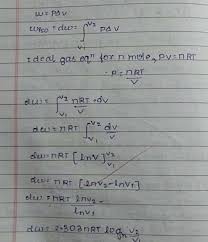 W = PΔV
dw = ∫ᵥ₁ⱽ² PΔV
Ideal gas eqⁿ for n mole, PV = nRT
P = nRT/V
dw = ∫ᵥ₁ⱽ² nRT/V · dv
dw = nRT ∫ᵥ₁ⱽ² dv/V
dw = nRT [lnV]ᵥ₁ⱽ²
dw = nRT [lnV₂ - lnV₁]
dw = nRT lnV₂ -
lnV₁
dw = 2.303nRT log V₂/V₁